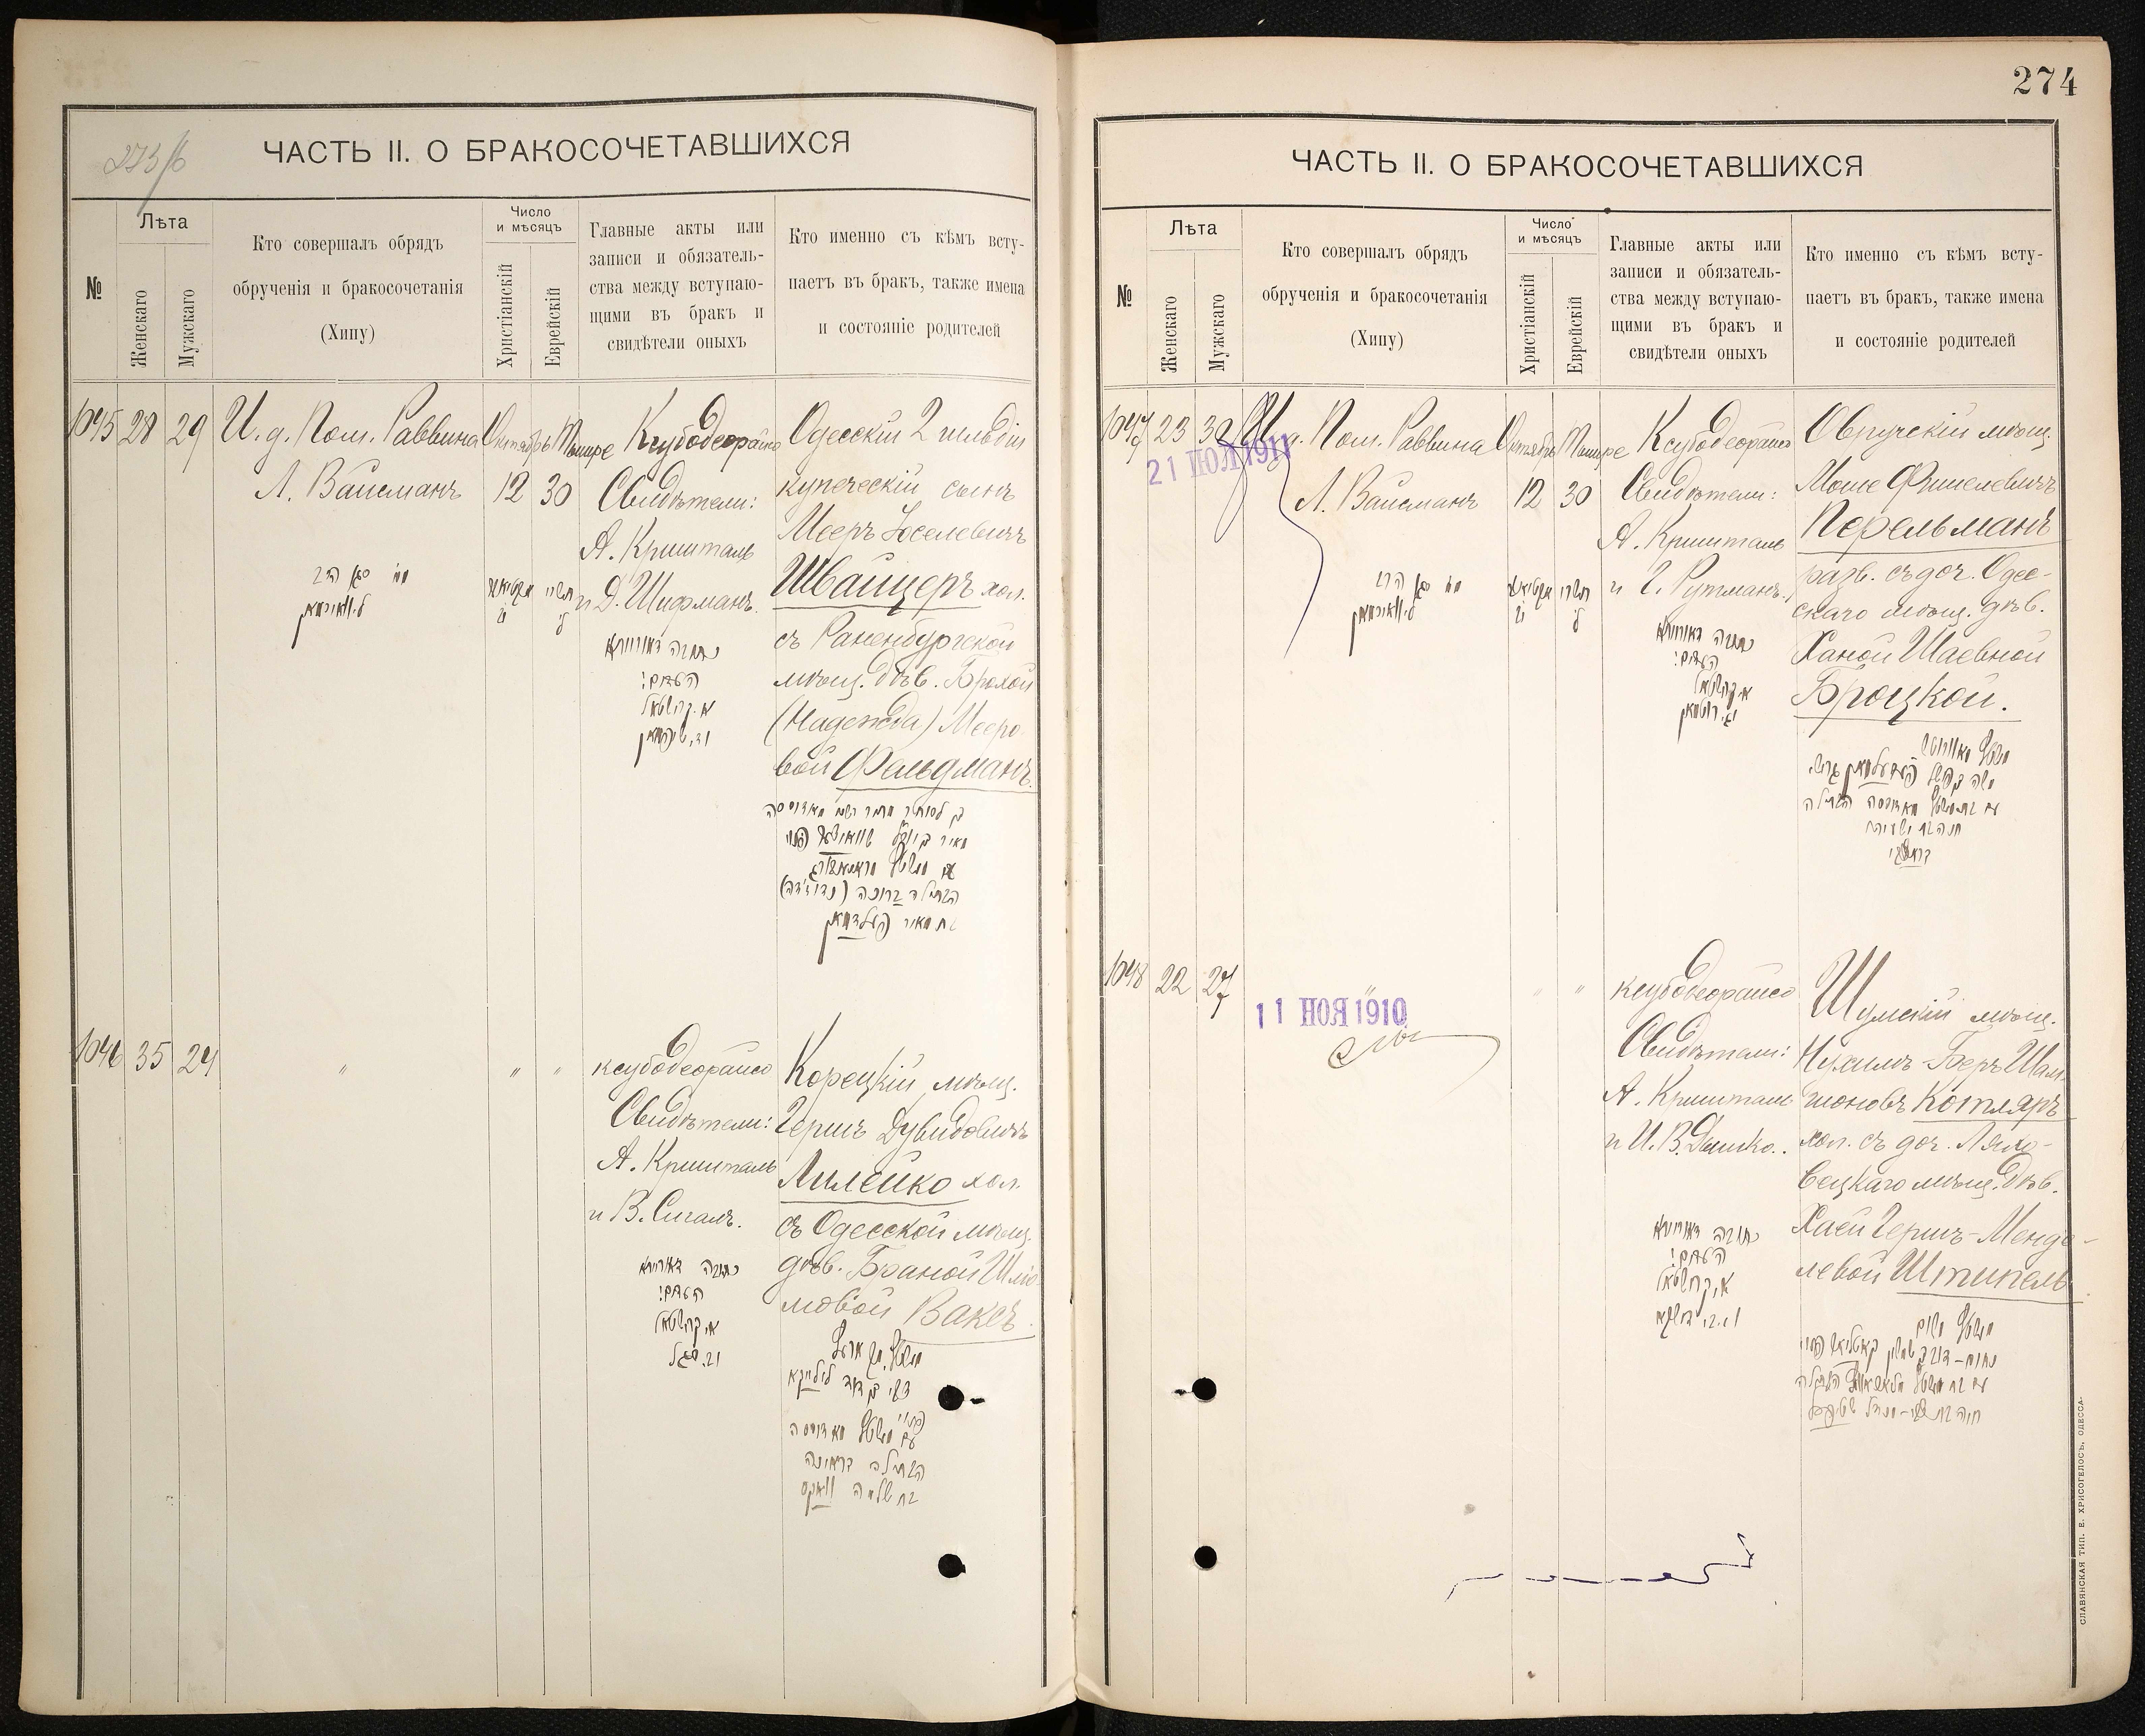 273/б
ЧАСТЬ II. О БРАКОСОЧЕТАВШИХСЯ
№
Лѣта
Женскаго
Мужскаго
Кто совершалъ обрядъ
обрученія и бракосочетанія
(Хипу)
Число
и мѣсяцъ
Христіанскій
Еврейскій
Главные акты или
записи и обязатель-
ства между вступаю-
щими въ бракъ и
свидѣтели оныхъ
Кто именно съ кѣмъ всту-
паетъ въ бракъ, также имена
и состояніе родителей
1045 28 29
И. д. Пом. Раввина
Л. Вайсманъ
Октябрь Тишре
12 30
Ксубодеорайсо
Свидѣтели:
А. Кришталь
и Д. Шифманъ.
כתובה דאורייתא
העדים:
א. קרישטאל
וד. שיפמאן
Одесскій 2 гильдіи
купеческій сынъ
Мееръ Іоселевичъ
Швайцеръ хол.
съ Раненбургской
мѣщ. дѣв. Брохой
(Надежда) Мееро-
вой Фельдманъ.
הבתולה ברוכה (נדיזדה)
בת מאיר פעלדמאן
1046 35 24
" " "
ксубодеорайсо
Свидѣтели:
А. Кришталь
и В. Сигалъ.
כתובה דאורייתא
העדים:
א. קרישטאל
וב. סגל
Корецкій мѣщ.
Гершъ Дувидовичъ
Лилейко хол.
съ Одесской мѣщ.
дѣв. Браной Шлё-
мовой Ваксъ.
בת שלמה וואקס
274
ЧАСТЬ II. О БРАКОСОЧЕТАВШИХСЯ
№
Лѣта
Женскаго
Мужскаго
Кто совершалъ обрядъ
обрученія и бракосочетанія
(Хипу)
Число
и мѣсяцъ
Христіанскій
Еврейскій
Главные акты или
записи и обязатель-
ства между вступаю-
щими въ бракъ и
свидѣтели оныхъ
Кто именно съ кѣмъ всту-
паетъ въ бракъ, также имена
и состояніе родителей
1047 23 30
21 ИЮЛ 1911
И. д. Пом. Раввина
Л. Вайсманъ
Октябрь Тишре
12 30
Ксубодеорайсо
Свидѣтели:
А. Кришталь
и Г. Рутманъ.
כתובה דאורייתא
העדים:
א. קרישטאל
וג. רוטמאן
Овручскій мѣщ.
Моше Фишелевичъ
Перельманъ
разв. съ доч. Одес-
скаго мѣщ. дѣв.
Ханой Шаевной
Броцкой.
חנה בת ישעיה
1048 22 27
11 НОЯ 1910
" "
ксубодеорайсо
Свидѣтели:
А. Кришталь
и И. В. Дишко.
כתובה דאורייתא
העדים:
א. קרישטאל
Шумскій мѣщ.
Нухимъ-Беръ Шам-
шоновъ Котляръ
хол. съ доч. Ляхо-
вецкаго мѣщ. дѣв.
Хаей Гершъ-Менде-
левой Штипель
СЛАВЯНСКАЯ ТИП. Е. ХРИСОГЕЛОСЪ, ОДЕССА.